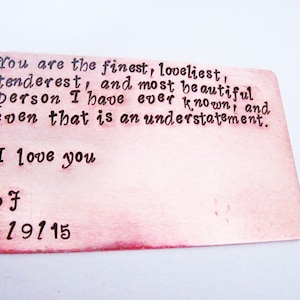 You are the finest, loveliest,
tenderest, and most beautiful
person I have ever known, and
even that is an understatement.
I love you
J
/9/15